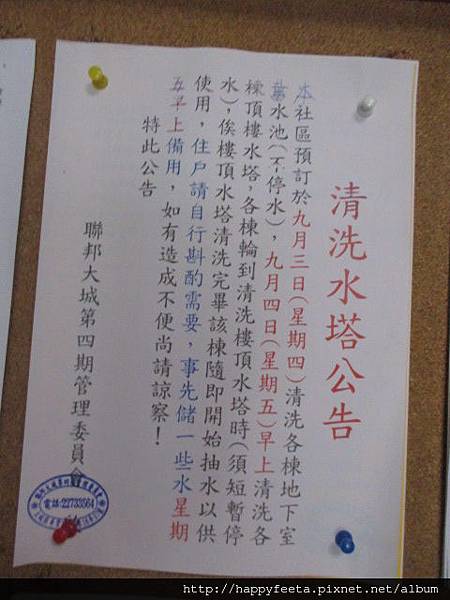 清洗水塔公告
本社區預訂於九月三日(星期四)清洗各棟地下室
蓄水池(不停水)，九月四日(星期五)早上清洗各
棟頂樓水塔，各棟輪到清洗樓頂水塔時(須短暫停
水)，俟樓頂水塔清洗完畢該棟隨即開始抽水以供
使用，住戶請自行斟酌需要，事先儲一些水星期
五早上備用，如有造成不便尚請諒察！
特此公告
聯邦大城第四期管理委員會
電話:22733564
http://happyfeeta.pixnet.net/album